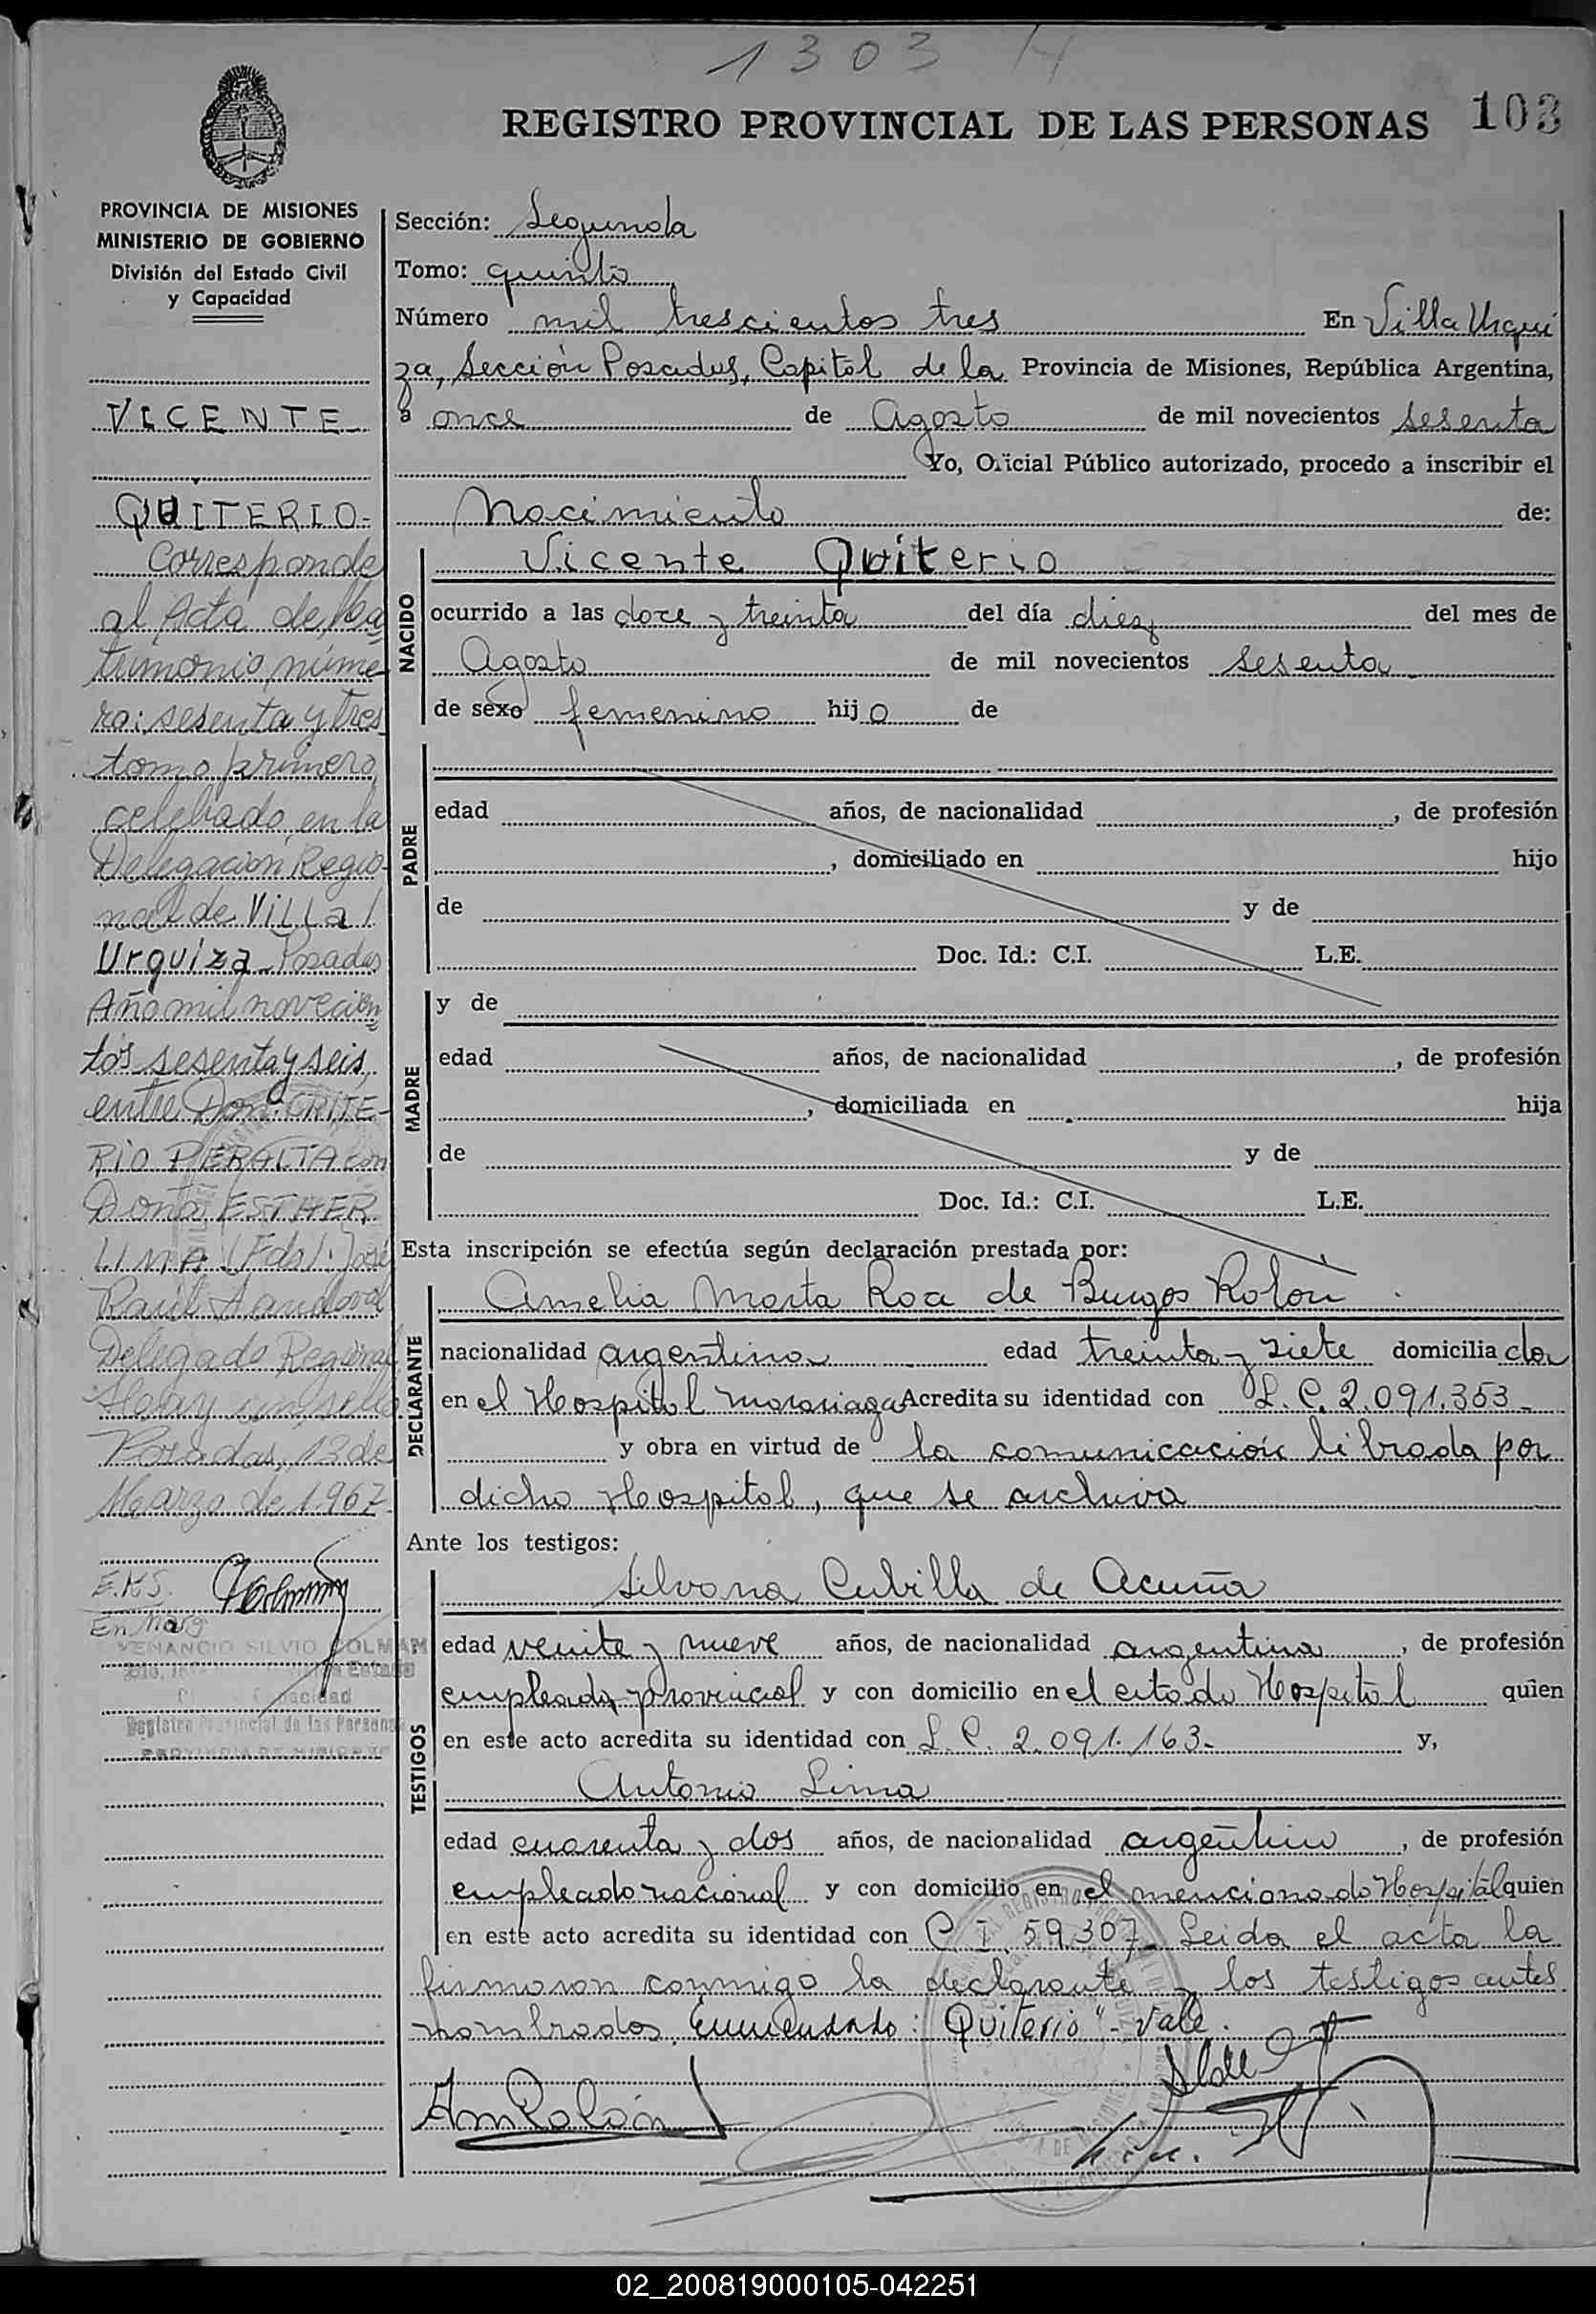 1303
REGISTRO PROVINCIAL DE LAS PERSONAS 103
PROVINCIA DE MISIONES
MINISTERIO DE GOBIERNO
División del Estado Civil
y Capacidad
VICENTE
QUITERIO=
Corresponde
al Acta de Ma
trimonio núme
ro: sesenta y tres
tomo primero,
celebrado en la
Delegación Regio-
nal de Villa
Urquiza Posadas
Año mil novecien
tos sesenta y seis,
entre Don: CRITE-
RIO PERALTA con
Doña ESTHER
LIMA (Fdo). José
Raúl Sandoval
Delegado Regional
Hay un sello
Posadas, 13 de
Marzo de 1967
E.K.S.
En Marg
VENANCIO SILVIO COLMAN
Estado
Capacidad
Registro Provincial de las Personas
PROVINCIA DE MISIONES
Sección: Segunda
Tomo: quinto
Número mil trescientos tres En Villa Urqui
za, Sección Posadas, Capital de la Provincia de Misiones, República Argentina,
a once de Agosto de mil novecientos sesenta
Yo, Oficial Público autorizado, procedo a inscribir el
Nacimiento de:
NACIDO
Vicente Quiterio
ocurrido a las doce y treinta del día diez del mes de
Agosto de mil novecientos sesenta
de sexo femenino hijo de
PADRE
edad años, de nacionalidad , de profesión
, domiciliado en hijo
de y de
Doc. Id.: C.I. L.E.
MADRE
y de
edad años, de nacionalidad , de profesión
, domiciliada en hija
de y de
Doc. Id.: C.I. L.E.
Esta inscripción se efectúa según declaración prestada por:
DECLARANTE
Amelia Marta Roa de Burgos Rolón
nacionalidad argentina edad treinta y siete domiciliada
en el Hospital Madariaga Acredita su identidad con L.C. 2.091.353-
y obra en virtud de la comunicación librada por
dicho Hospital, que se archiva
Ante los testigos:
TESTIGOS
Silvana Cubilla de Acuña
edad veinte y nueve años, de nacionalidad argentina , de profesión
empleada provincial y con domicilio en el citado Hospital quien
en este acto acredita su identidad con L.C. 2.091.163- y,
Antonio Lima
edad cuarenta y dos años, de nacionalidad argentino , de profesión
empleado nacional y con domicilio en el mencionado Hospital quien
en este acto acredita su identidad con C.I. 59.307- Leida el acta la
firmaron conmigo la declarante y los testigos antes
nombrados. Enmendado: "Quiterio"- Vale.
AmRolón
02_200819000105-042251